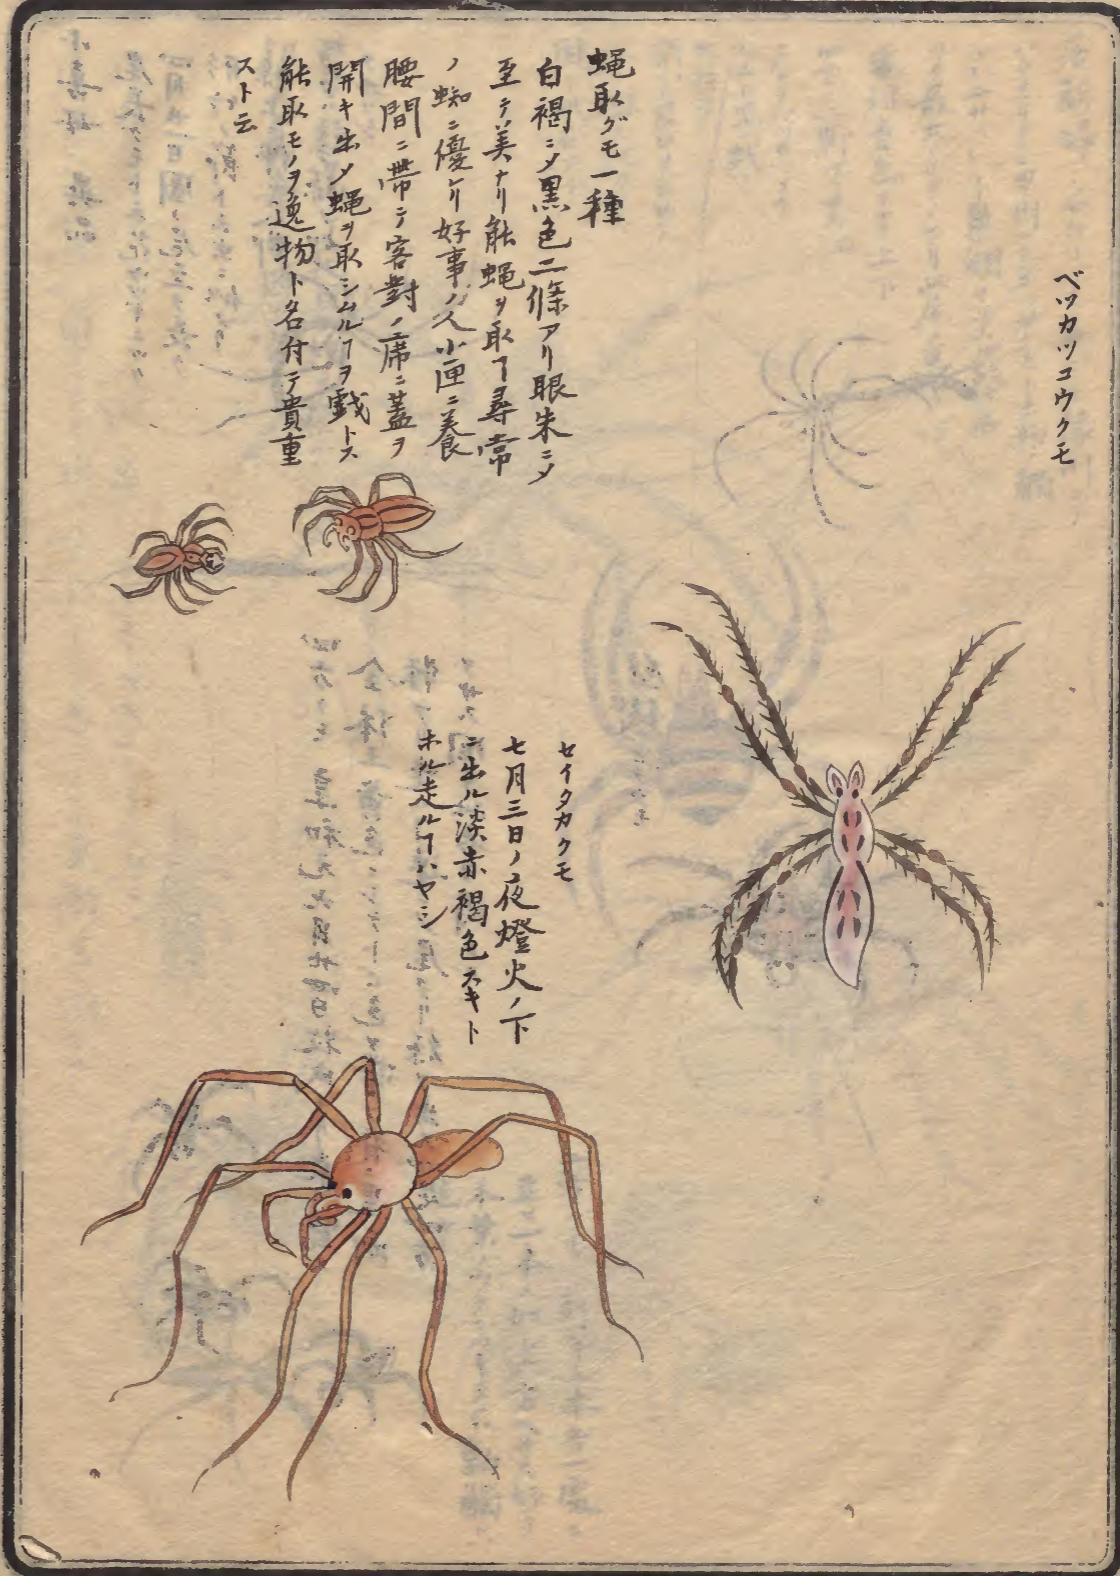 ベツカツコウクモ
蝿取グモ一種
白褐ニメ黒色二條アリ眼朱ニメ
至テ美ナリ能蝿ヲ取ヿ尋常
ノ蜘ニ優レリ好事ノ人小匣ニ養
腰間ニ帯テ客對ノ席ニ蓋ヲ
開キ出メ蝿ヲ取シムルヿヲ戯トス
能取モノヲ逸物ト名付テ貴重
スト云
セイタカクモ
七月三日ノ夜燈火ノ下
ニ出ル淡赤褐色スキト
ホル走ルヿハヤシ